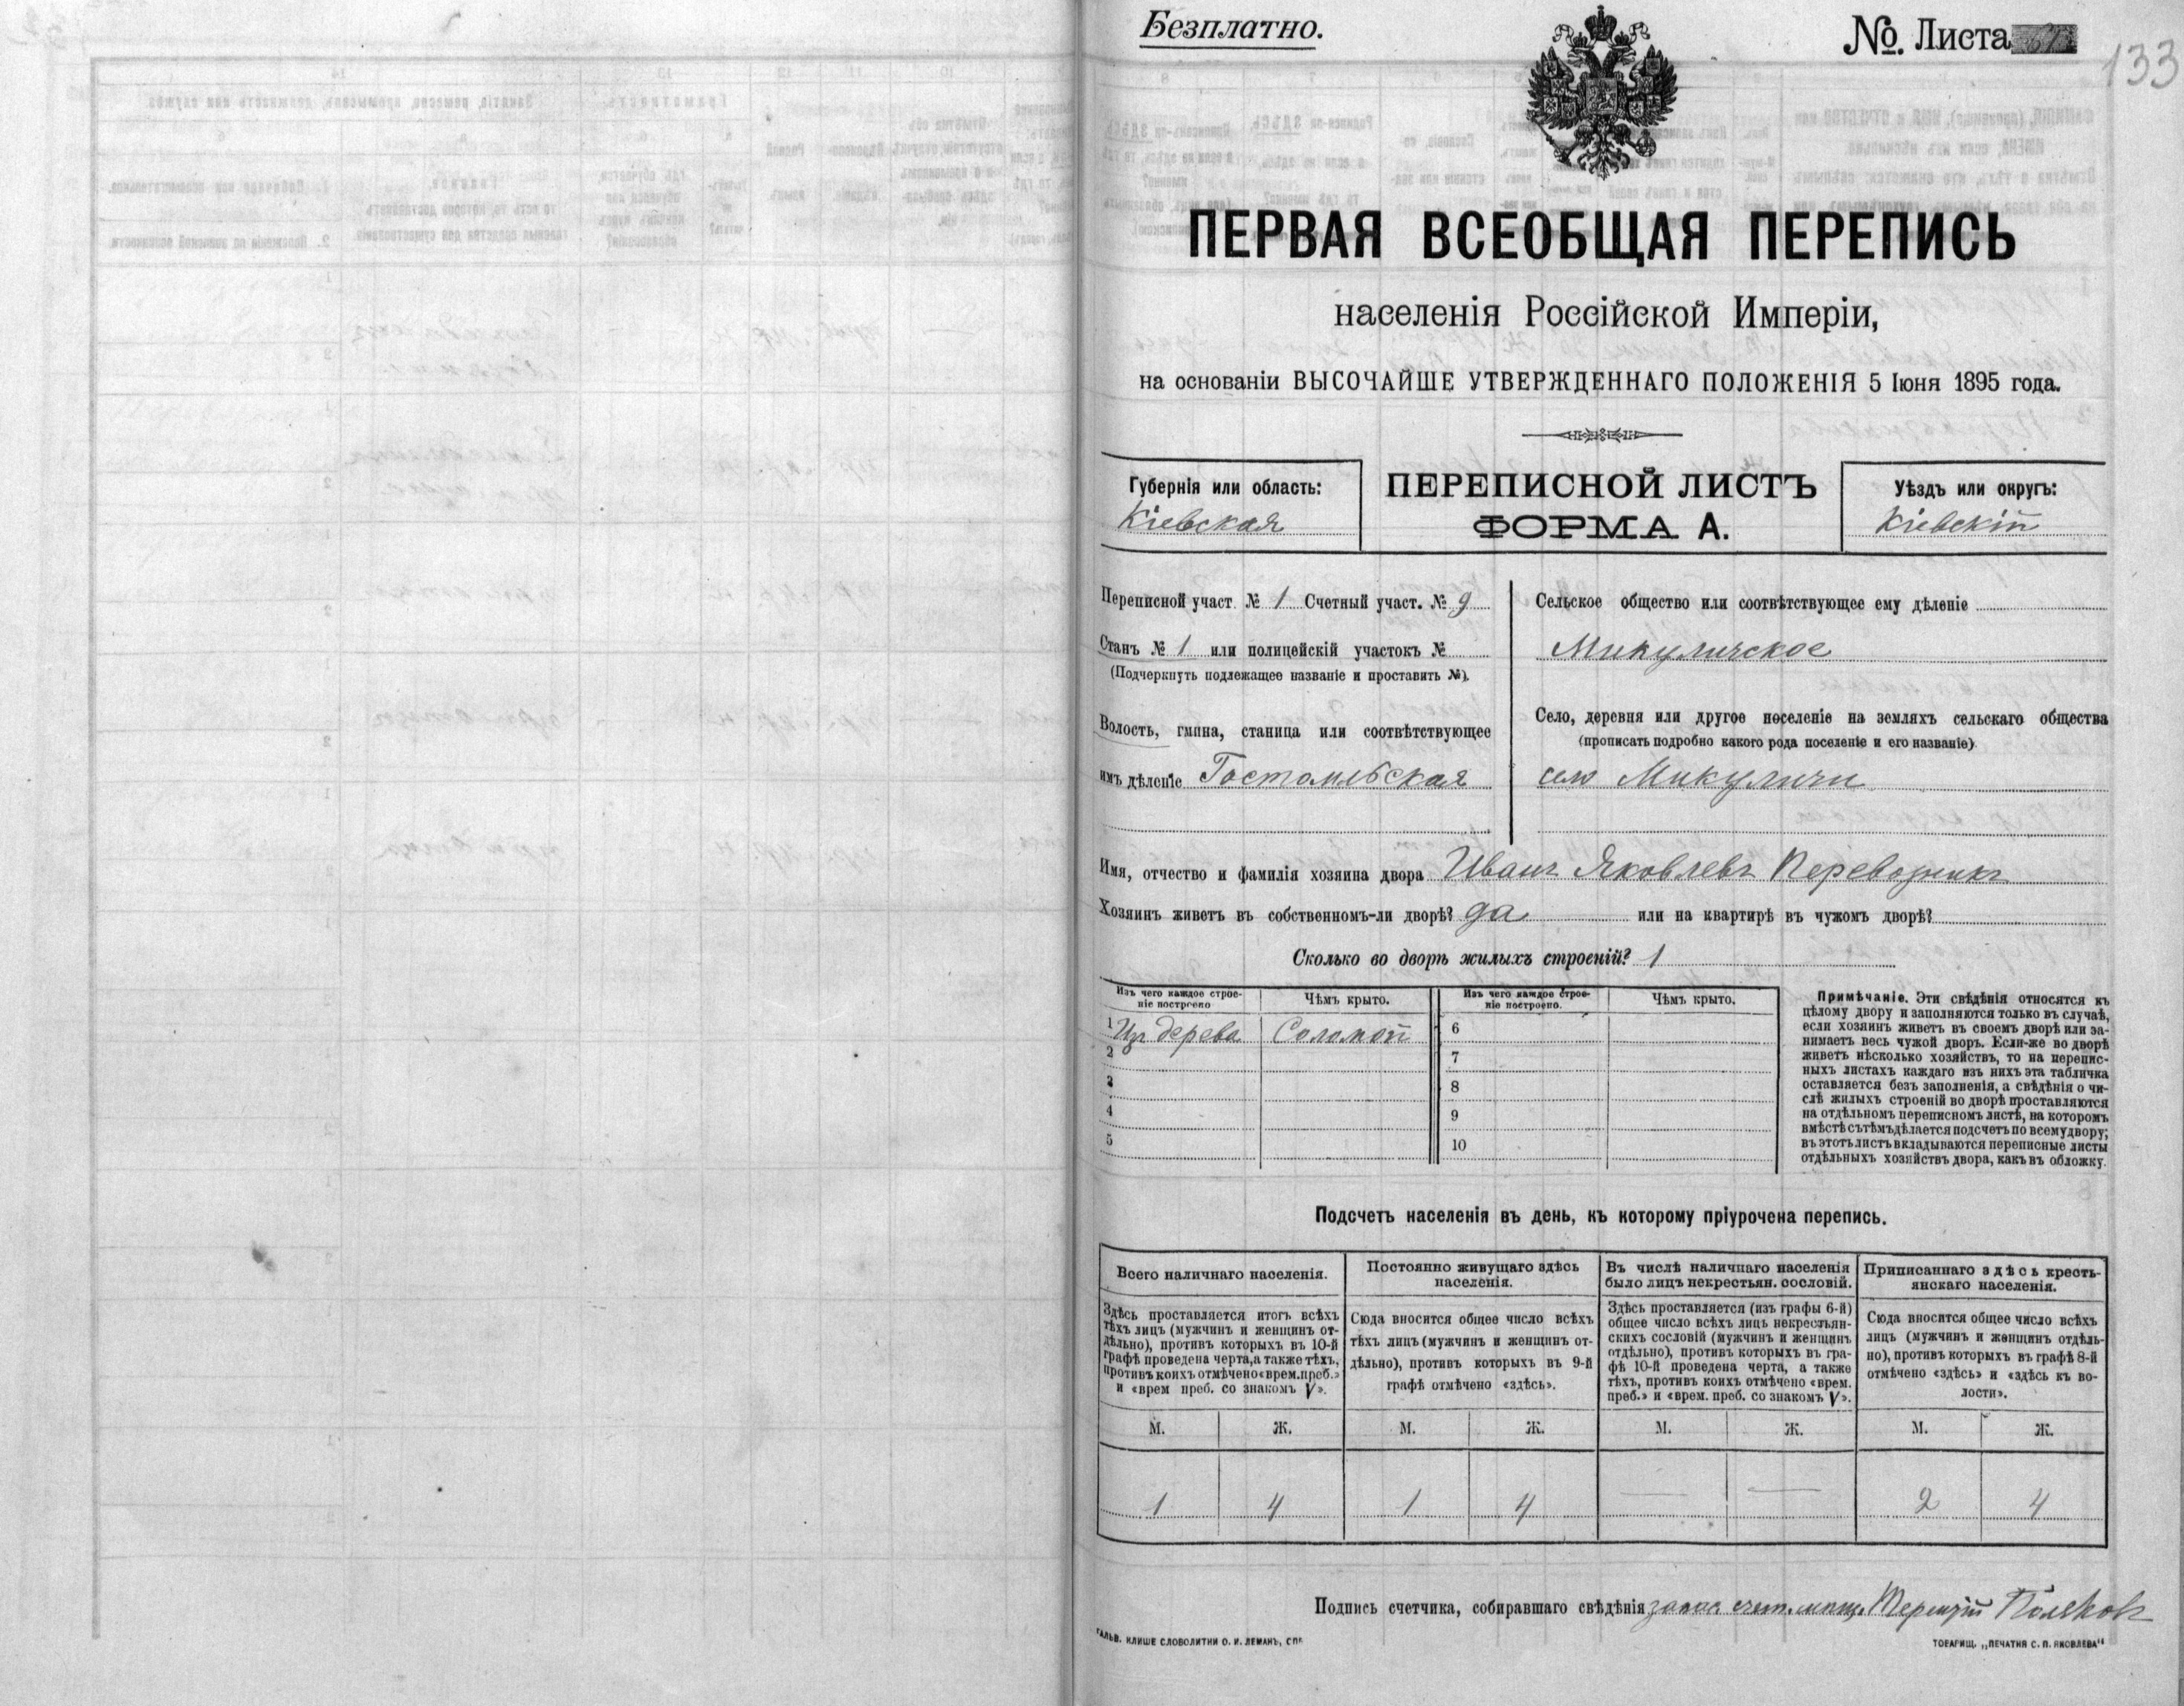 Безплатно.
№. Листа
133
ПЕРВАЯ ВСЕОБЩАЯ ПЕРЕПИСЬ
населенія Россійской Имперіи,
на основаніи ВЫСОЧАЙШЕ УТВЕРЖДЕННАГО ПОЛОЖЕНІЯ 5 Іюня 1895 года.
Губернія или область:
Кіевская
ПЕРЕПИСНОЙ ЛИСТЪ
ФОРМА А.
Уѣздъ или округъ:
Кіевскій
Переписной участ. № 1 Счетный участ. № 9
Станъ № 1 или полицейскій участокъ №
(Подчеркнуть подлежащее названіе и проставить №).
Волость, гмина, станица или соотвѣтствующее
имъ дѣленіе Гостомльская
Сельское общество или соотвѣтствующее ему дѣленіе
Микуличское
Село, деревня или другое поселеніе на земляхъ сельскаго общества
(прописать подробно какого рода поселеніе и его названіе).
село Микуличи
Имя, отчество и фамилія хозяина двора Иванъ Яковлевъ Перевозникъ
Хозяинъ живетъ въ собственномъ-ли дворѣ? да или на квартирѣ въ чужомъ дворѣ?
Сколько во дворѣ жилыхъ строеній? 1
Изъ чего каждое строе-
ніе построено
Чѣмъ крыто.
Изъ чего каждое строе-
ніе построено.
Чѣмъ крыто.
1 Изъ дерева Соломой 6
2 7
3 8
4 9
5 10
Примѣчаніе. Эти свѣдѣнія относятся къ
цѣлому двору и заполняются только въ случаѣ,
если хозяинъ живетъ въ своемъ дворѣ или за-
нимаетъ весь чужой дворъ. Если-же во дворѣ
живетъ нѣсколько хозяйствъ, то на перепис-
ныхъ листахъ каждаго изъ нихъ эта табличка
оставляется безъ заполненія, а свѣдѣнія о чи-
слѣ жилыхъ строеній во дворѣ проставляются
на отдѣльномъ переписномъ листѣ, на которомъ
вмѣстѣ съ тѣмъ дѣлается подсчетъ по всему двору;
въ этотъ листъ вкладываются переписные листы
отдѣльныхъ хозяйствъ двора, какъ въ обложку.
Подсчетъ населенія въ день, къ которому пріурочена перепись.
Всего наличнаго населенія.
Здѣсь проставляется итогъ всѣхъ
тѣхъ лицъ (мужчинъ и женщинъ от-
дѣльно), противъ которыхъ въ 10-й
графѣ проведена черта, а также тѣхъ,
противъ коихъ отмѣчено «врем. преб.»
и «врем преб. со знакомъ V».
Постоянно живущаго здѣсь
населенія.
Сюда вносится общее число всѣхъ
тѣхъ лицъ (мужчинъ и женщинъ от-
дѣльно), противъ которыхъ въ 9-й
графѣ отмѣчено «здѣсь».
Въ числѣ наличнаго населенія
было лицъ некрестьян. сословій.
Здѣсь проставляется (изъ графы 6-й)
общее число всѣхъ лицъ некрестьян-
скихъ сословій (мужчинъ и женщинъ
отдѣльно), противъ которыхъ въ гра-
фѣ 10-й проведена черта, а также
тѣхъ, противъ коихъ отмѣчено «врем.
преб.» и «врем. преб. со знакомъ V».
Приписаннаго здѣсь кресть-
янскаго населенія.
Сюда вносится общее число всѣхъ
лицъ (мужчинъ и женщинъ отдѣль-
но), противъ которыхъ въ графѣ 8-й
отмѣчено «здѣсь» и «здѣсь къ во-
лости».
М. Ж. М. Ж. М. Ж. М. Ж.
1 4 1 4 — — 2 4
Подпись счетчика, собиравшаго свѣдѣнія Терентій Поляковъ
ГАЛЬВ. КЛИШЕ СЛОВОЛИТНИ О. И. ЛЕМАНЪ, СПБ
ТОВАРИЩ. „ПЕЧАТНЯ С. П. ЯКОВЛЕВА"